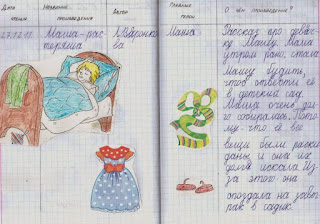 Дата чтения
Название произведения
Автор
Главные герои
О чём произведение?
27.12.11.
Маша-рас-
теряша
Л.Воронко-
ва
Маша
Рассказ про девоч-
ку Машу. Мама
утром рано, стала
Машу будить,
чтоб отвести её
в детский сад.
Маша очень дол-
го собиралась. Пото-
му-что её все
вещи были раски-
даны, и она их
долго искала. Из-
за этого она
опоздала на завт-
рак в садик.